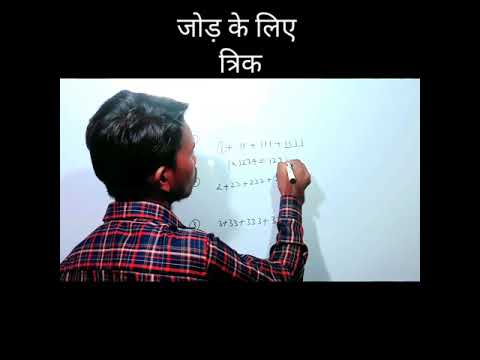 जोड़ के लिए
त्रिक
1 + 11 + 111 + 1111
1×1234 = 123
2+22+222+
3+33+333+3